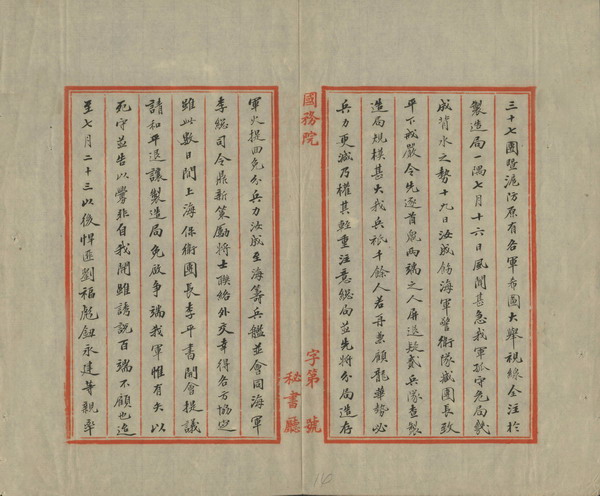 三十七團暨滬防原有各軍希圖大舉視線全注於
製造局一隅七月十六日風聞甚急我軍孤守危局幾
成背水之勢十九日汝成飭海軍警衛隊臧團長致
平下戒嚴令先逐首鼠兩端之人屏退疑貳兵隊查製
造局規模甚大我兵祇千餘人若再兼顧龍華勢必
兵力更減乃權其輕重注意總局並先將分局造存
國務院
字第 號
秘書廳
軍火提回免分兵力汝成至海籌兵艦並會同海軍
李總司令鼎新策勵將士聯絡外交幸得各方協定
雖此數日間上海保衛團長李平書開會提議
請和平退讓製造局免啟爭端我軍惟有矢以
死守並告以釁非自我開雖誘說百端不顧也迨
至七月二十三以後悍匪劉福彪鈕永建等親率